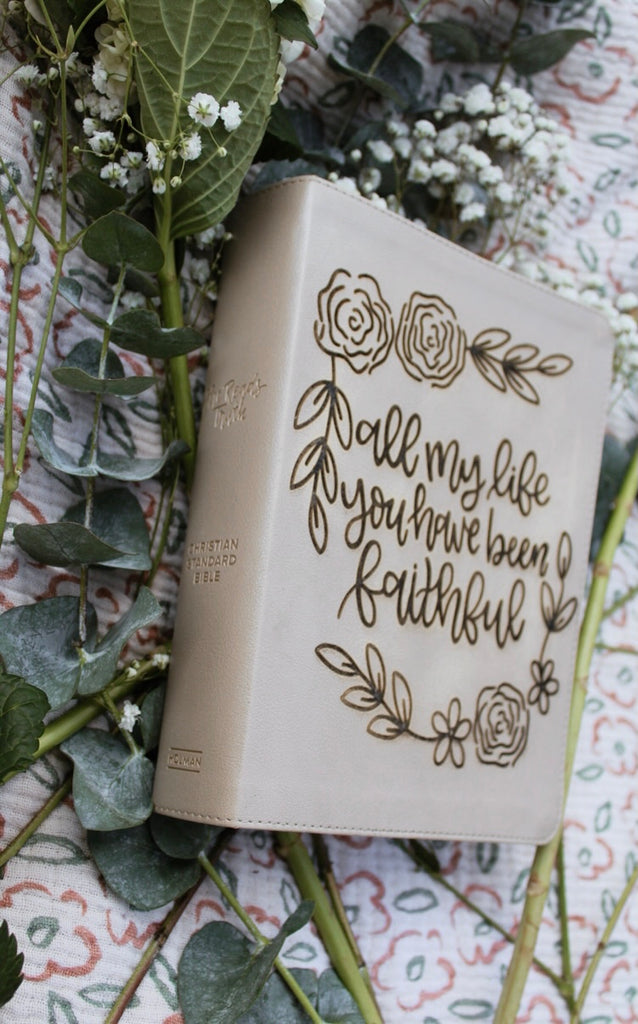 all my life
you have been
faithful
Reads
Truth
CHRISTIAN
STANDARD
BIBLE
HOLMAN